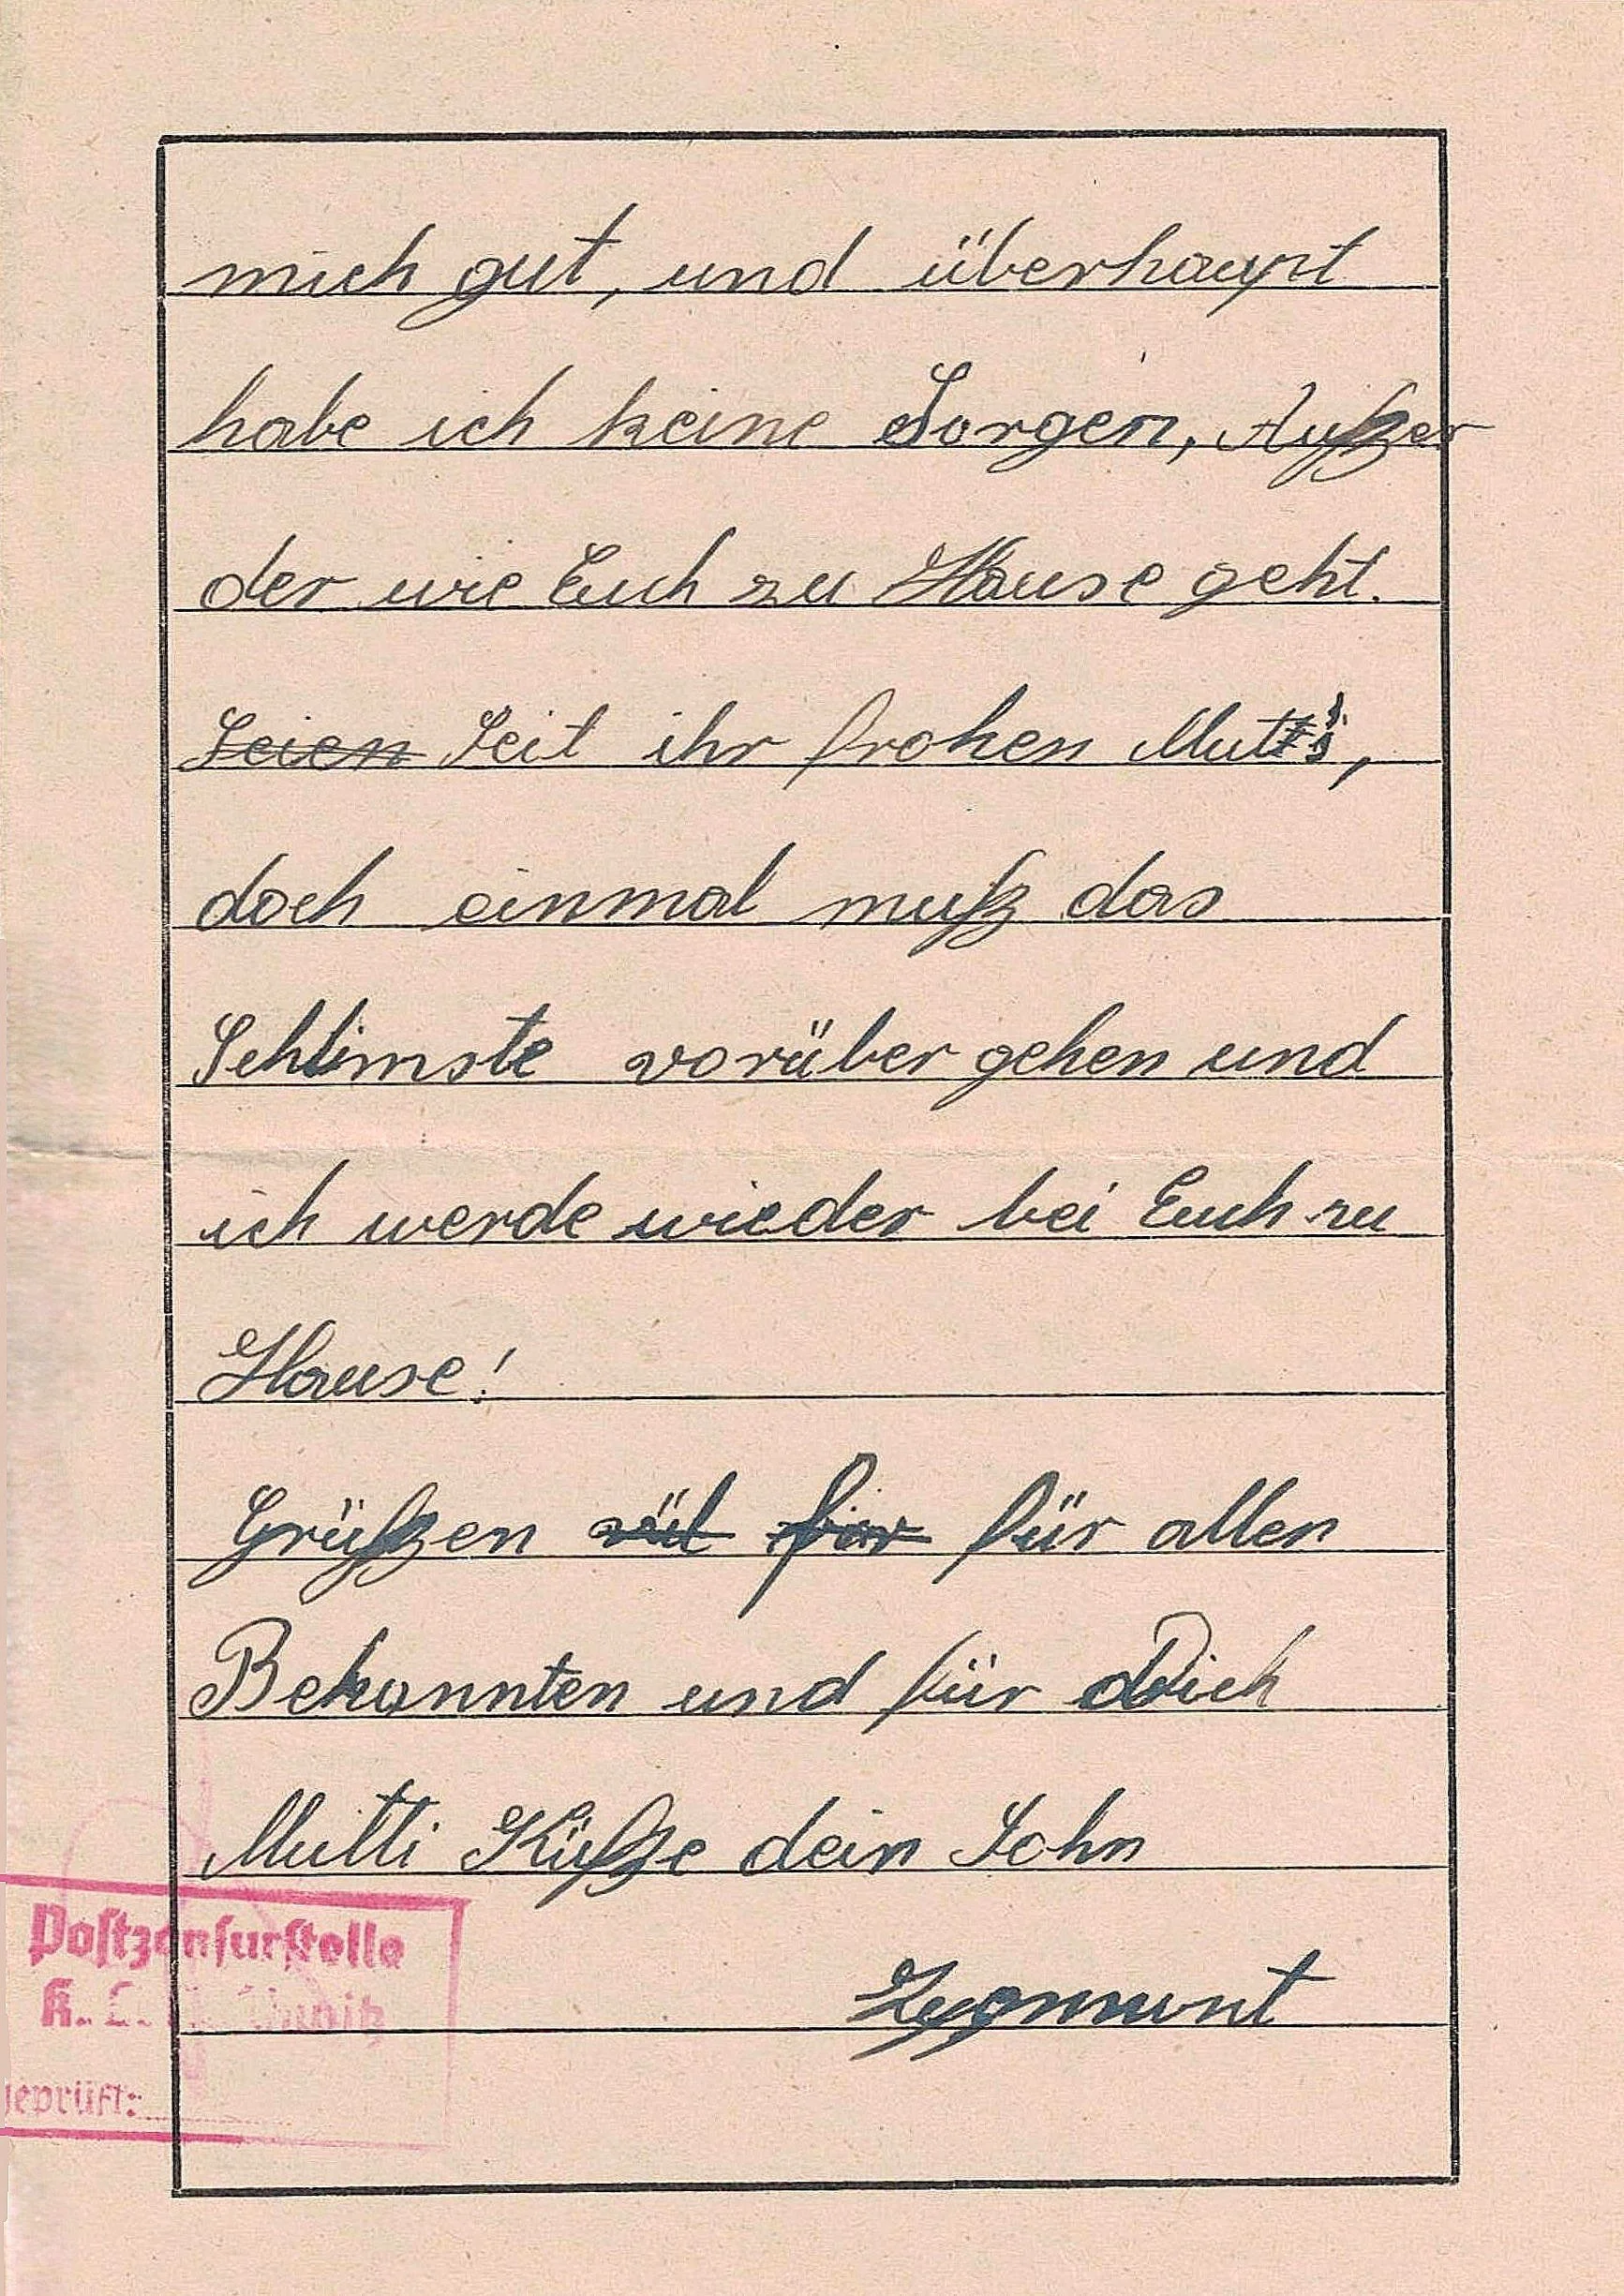 mich gut, und überhaupt
habe ich keine Sorgen, Außer
der wie Euch zu Hause geht.
Seien Seit ihr frohen Mut's,
doch einmal muß das
Schlimste vorüber gehen und
ich werde wieder bei Euch zu
Hause!
Grüßen für für allen
Bekannten und für Dich
Mutti Küße dein Sohn
Zygmunt
Postzensurstelle
K.L.
geprüft: